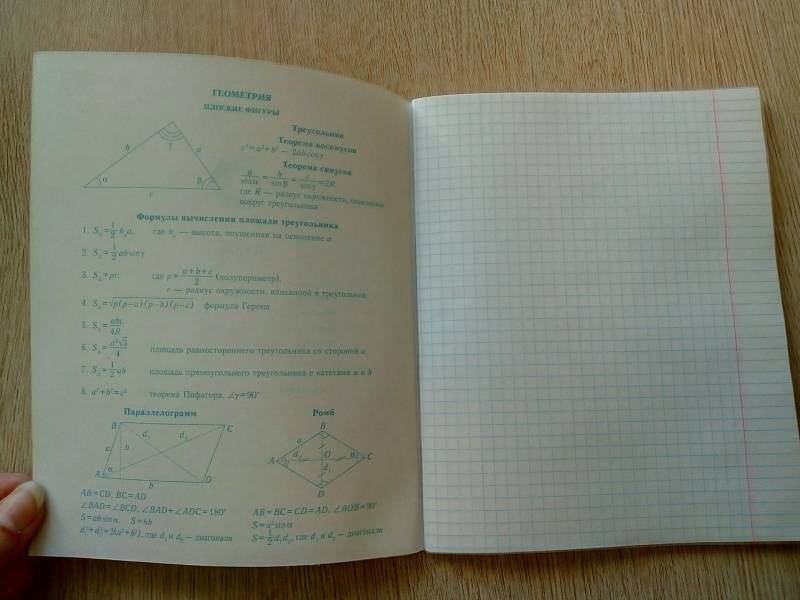 ГЕОМЕТРИЯ
ПЛОСКИЕ ФИГУРЫ
Треугольник
Теорема косинусов
c²=a²+b² − 2abcosγ
Теорема синусов
a/sinα = b/sinβ = c/sinγ =2R,
где R — радиус окружности, описанной
вокруг треугольника
b γ a
α β
c
Формулы вычисления площади треугольника
1. S△=1/2 hₐa, где hₐ — высота, опущенная на основание a
2. S△=1/2 absinγ
3. S△=pr, где p= (a+b+c)/2 (полупериметр),
r — радиус окружности, вписанной в треугольник
4. S△=√p(p−a)(p−b)(p−c) формула Герона
5. S△=abc/4R
6. S△=a²√3/4 площадь равностороннего треугольника со стороной a
7. S△=1/2 ab площадь прямоугольного треугольника с катетами a и b
8. a²+b²=c² теорема Пифагора, ∠γ=90°
Параллелограмм
B C
d₁ d₂
a h
A α D
b
AB=CD, BC=AD
∠BAD=∠BCD, ∠BAD+∠ADC=180°
S=absinα, S=hb
d₁²+d₂²=2(a²+b²), где d₁ и d₂ — диагонали
Ромб
B
a
A α d₂ O C
d₁
D
AB=BC=CD=AD, ∠AOB=90°
S=a²sinα
S=1/2 d₁d₂, где d₁ и d₂ — диагонали